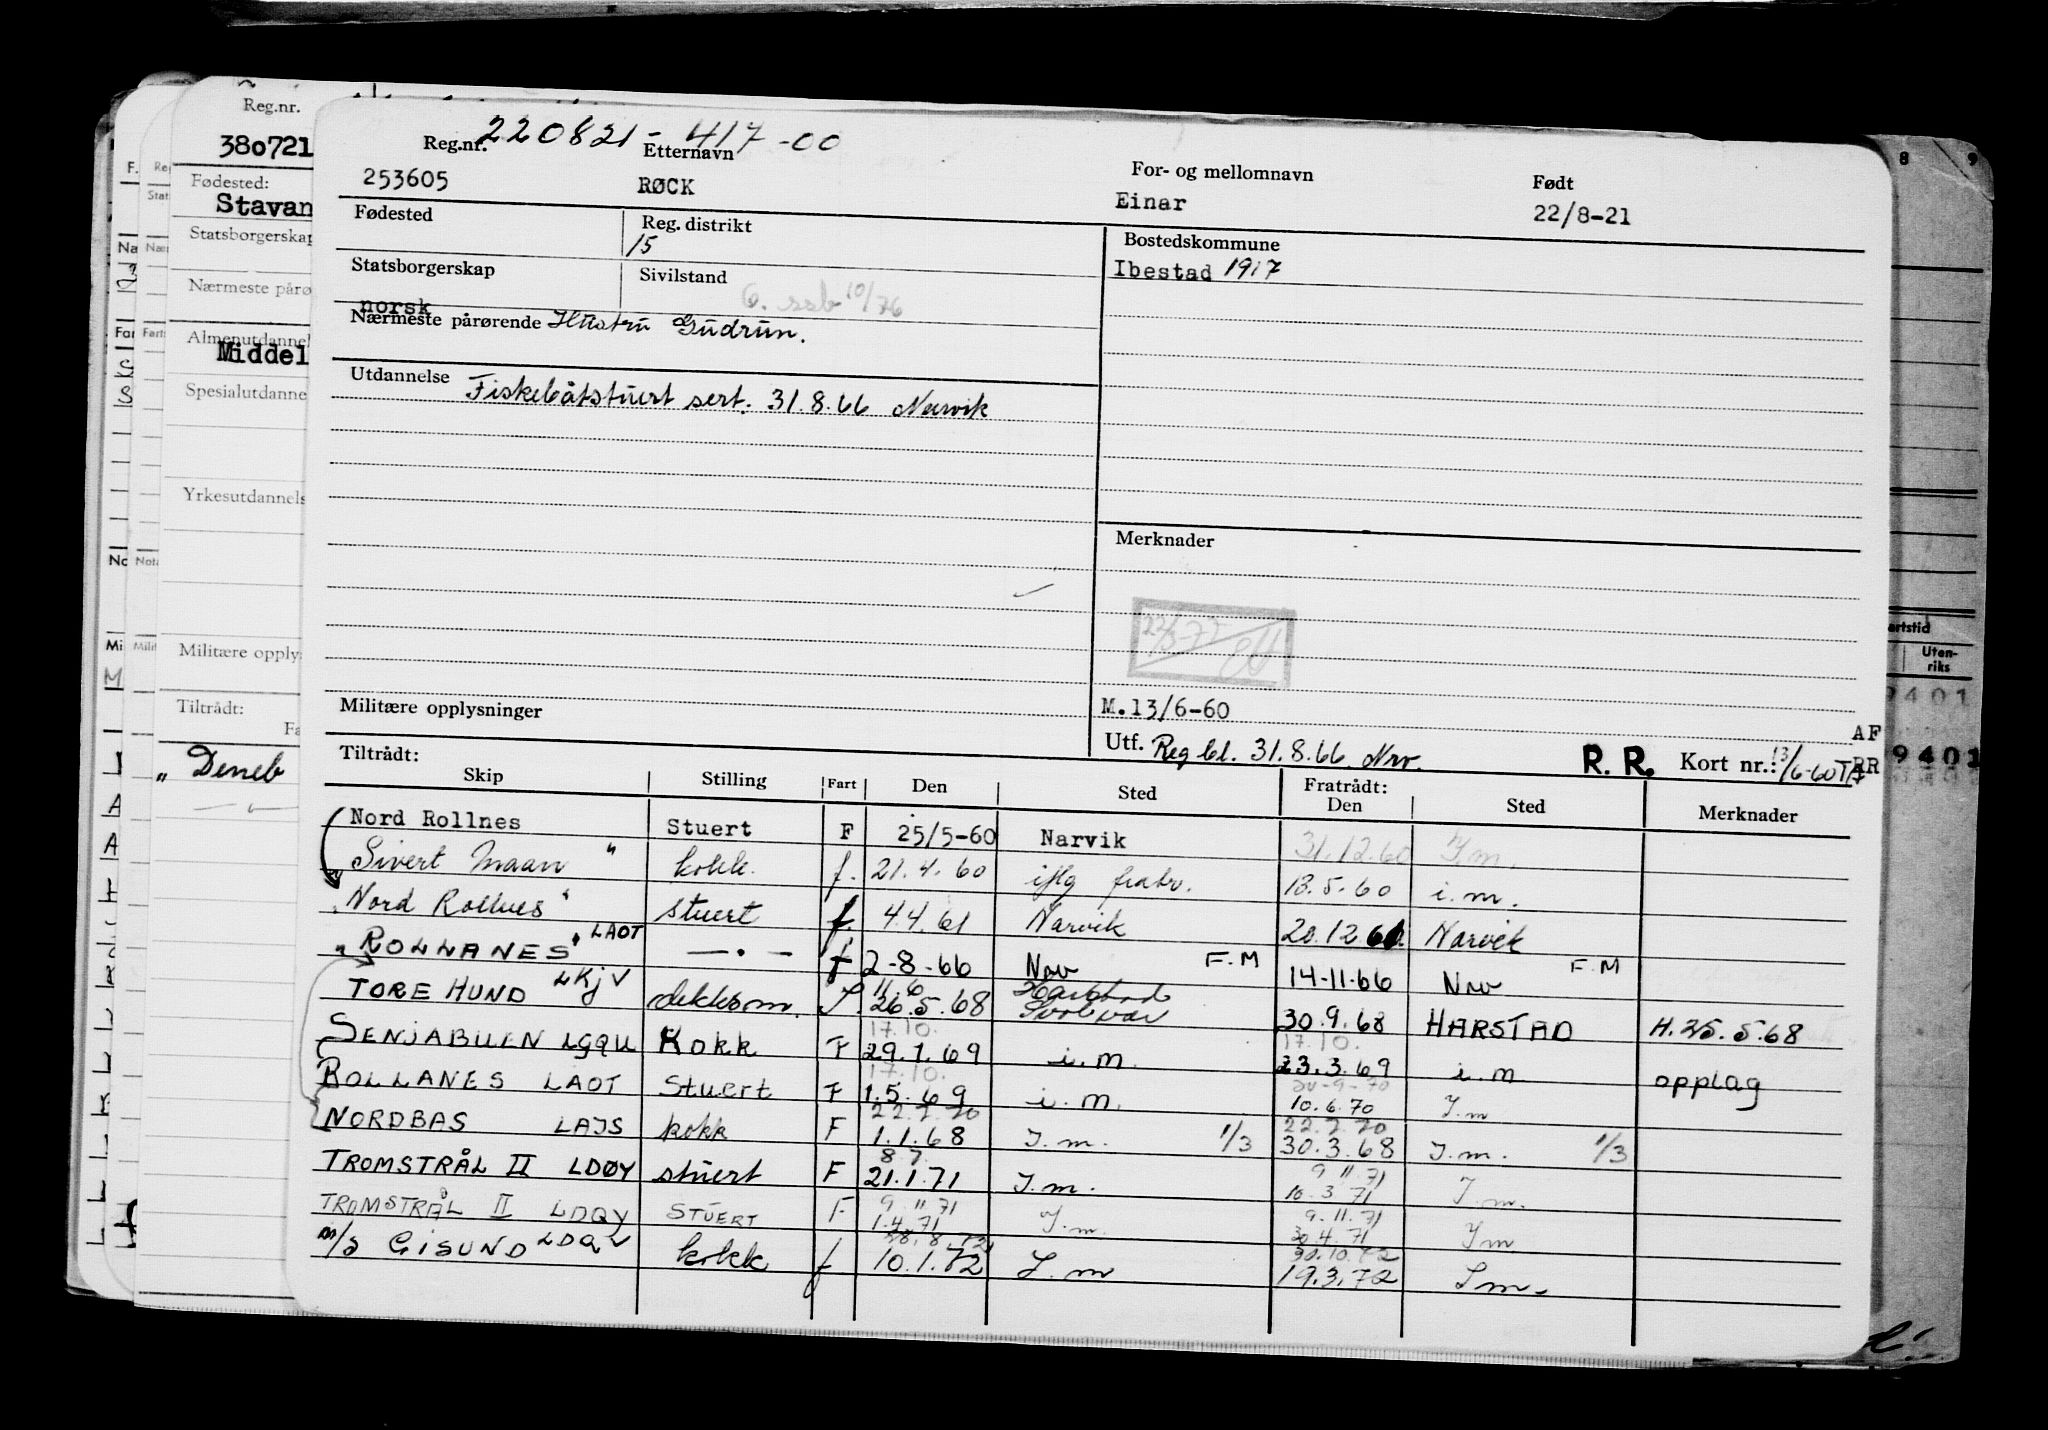 220821-417-00
Reg.nr. Etternavn For- og mellomnavn Født
253605 RØCK Einar 22/8-21
Fødested Reg. distrikt Bostedskommune
15
Ibestad 1917
Statsborgerskap Sivilstand
norsk 6. ssb 10/76
Nærmeste pårørende Hustru Gudrun.
Utdannelse Fiskebåtstuert sert. 31.8.66 Narvik
Merknader
Militære opplysninger M.13/6-60
Utf. Reg bl. 31.8.66 Nrv. R. R. Kort nr.: 13/6-60
Tiltrådt: Fratrådt:
Skip Stilling Fart Den Sted Den Sted Merknader
Nord Rollnes Stuert F 25/5-60 Narvik 31.12.60 I.m.
Sivert Maan " kokk. f. 21.4.60 iflg fratr. 13.5.60 i.m.
"Nord Rollnes" stuert f. 4.4.61 Narvik 20.12.61 Narvik
"ROLLANES" LAOT — " — f 2-8-66 Nrv F.M 14-11-66 Nrv F.M
11.6 Harstad
TORE HUND LKJV dekksm. 26.5.68 Svolvær 30.9.68 HARSTAD H.25.5.68
17.10. 17.10.
SENJABUEN LGQU KOKK F 29.1.69 i.m. 23.3.69 i.m opplag
17.10. 20-9-70
ROLLANES LAOT Stuert F 1.5.69 i.m. 10.6.70 I.m
22.7.70 22.7.70
NORDBAS LAJS kokk F 1.1.68 I.m. 1/3 30.3.68 I.m. 1/3
8.7. 9 11 71
TROMSTRÅL II LDØY stuert F 21.1.71 I.m. 10.3 71 I.m.
9 11 71 9.11.71
TROMSTRÅL II LDQY STUERT F 1.4.71 I.m. 30.4.71 I m
30.10.72
M/S GISUND kokk f 10.1.72 I.m 19.3.72 I m.
Reg.nr.
380721
Fødested:
Stavan
Statsborgerskap
Nærmeste pårø
Almenutdannel
Middel
Spesialutdanne
Yrkesutdannels
Militære opply
Tiltrådt:
Fa
"Deneb
8 9
artstid
Uten-
riks
9401
AF
RR 9401